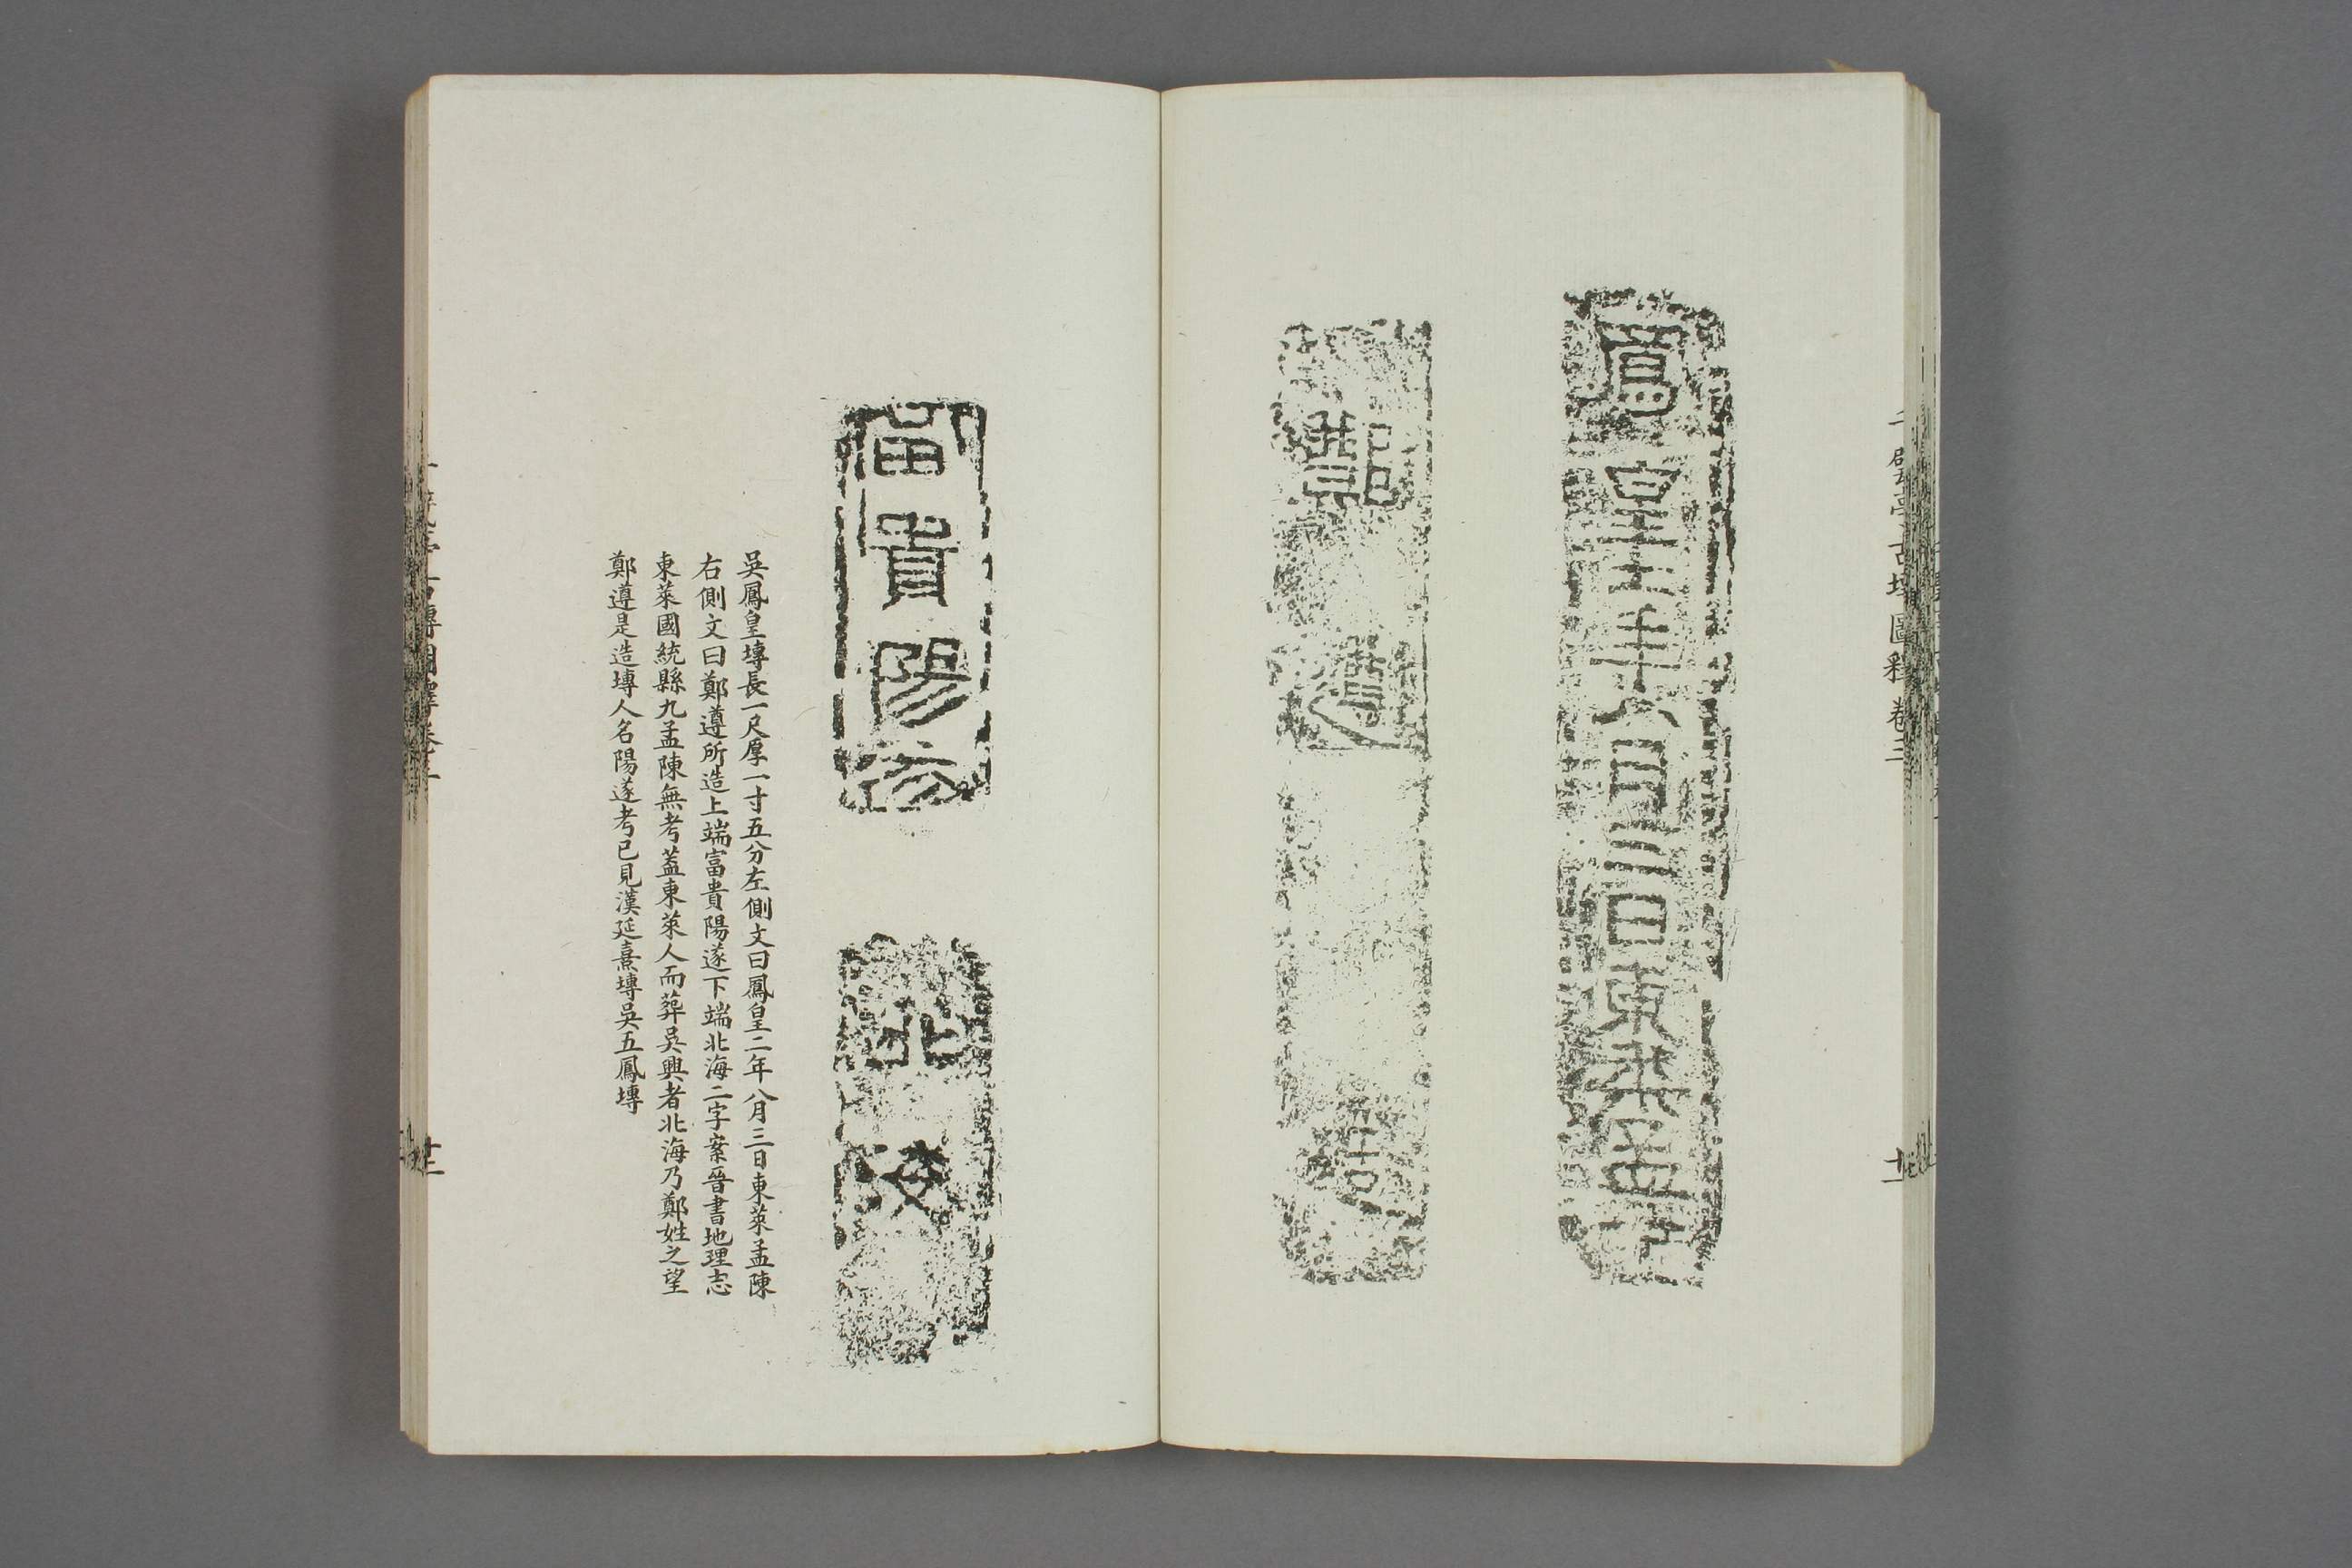 鳳皇二年八月三日東萊孟陳
鄭遵所造
富貴陽遂
北海
吳鳳皇塼長一尺厚一寸五分左側文曰鳳皇二年八月三日東萊孟陳
右側文曰鄭遵所造上端富貴陽遂下端北海二字案晉書地理志
東萊國統縣九孟陳無考蓋東萊人而葬吳興者北海乃鄭姓之望
鄭遵是造塼人名陽遂考已見漢延熹塼吳五鳳塼